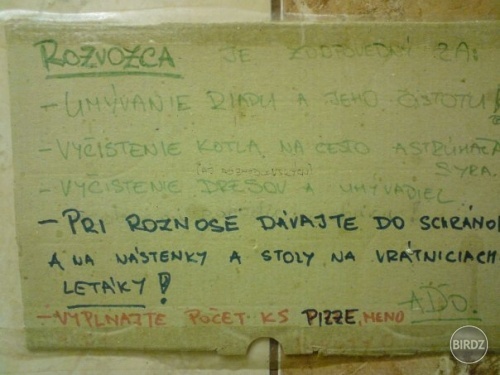 ROZVOZCA JE ZODPOVEDNÝ ZA:
- UMÝVANIE RIADU A JEHO ČISTOTU!
- VYČISTENIE KOTLA NA CESTO A STRÚHAČA
SYRA.
- VYČISTENIE DREZOV A UMÝVADIEL
- PRI ROZNOSE DÁVAJTE DO SCHRÁNO
A NA NÁSTENKY A STOLY NA VRÁTNICIACH
LETÁKY!
- VYPLŇAJTE POČET KS PIZZE, MENO
BIRDZ